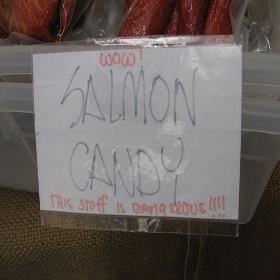 WOW!
SALMON
CANDY
THIS STUFF IS DANGEROUS!!!!